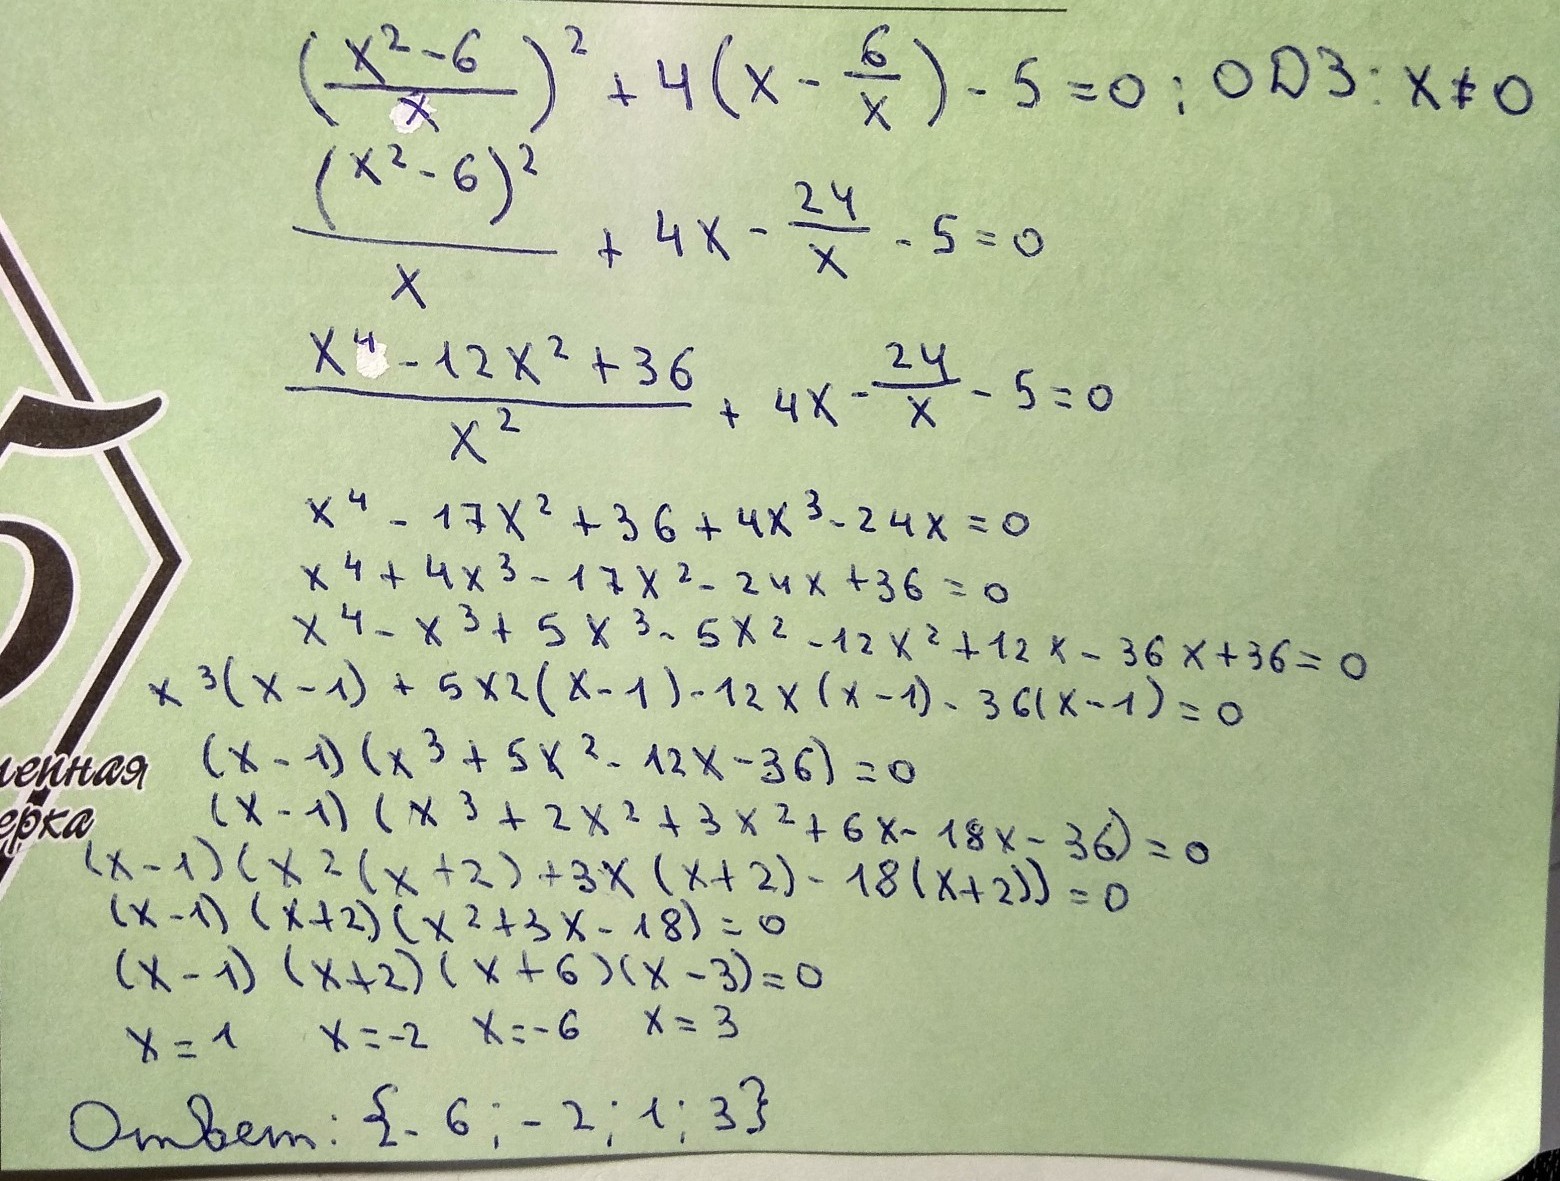 (x²-6/x)² + 4(x - 6/x) - 5 = 0; ОДЗ: x ≠ 0
(x²-6)²/x + 4x - 24/x - 5 = 0
x⁴ - 12x² + 36/x² + 4x - 24/x - 5 = 0
x⁴ - 17x² + 36 + 4x³ - 24x = 0
x⁴ + 4x³ - 17x² - 24x + 36 = 0
x⁴ - x³ + 5x³ - 5x² - 12x² + 12x - 36x + 36 = 0
x³(x-1) + 5x2(x-1) - 12x(x-1) - 36(x-1) = 0
(x-1)(x³ + 5x² - 12x - 36) = 0
ленная
(x-1)(x³ + 2x² + 3x² + 6x - 18x - 36) = 0
ерка
(x-1)(x²(x+2) + 3x(x+2) - 18(x+2)) = 0
(x-1)(x+2)(x² + 3x - 18) = 0
(x-1)(x+2)(x+6)(x-3) = 0
x = 1 x = -2 x = -6 x = 3
Ответ: {-6; -2; 1; 3}